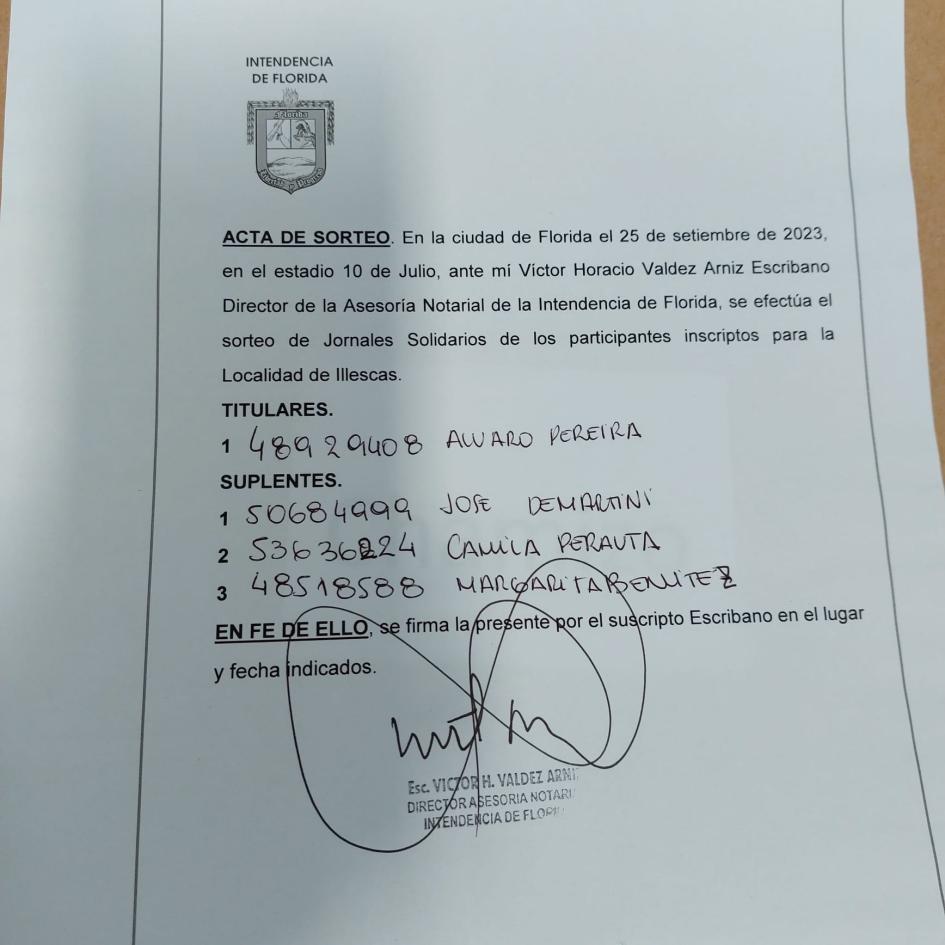 INTENDENCIA
DE FLORIDA
Florida
ACTA DE SORTEO. En la ciudad de Florida el 25 de setiembre de 2023,
en el estadio 10 de Julio, ante mí Víctor Horacio Valdez Arniz Escribano
Director de la Asesoría Notarial de la Intendencia de Florida, se efectúa el
sorteo de Jornales Solidarios de los participantes inscriptos para la
Localidad de Illescas.
TITULARES.
1 48929408 ALVARO PEREIRA
SUPLENTES.
1 50684999 JOSE DEMARTINI
2 53636224 CAMILA PERAUTA
3 48518588 MARGARITA BENITEZ
EN FE DE ELLO, se firma la presente por el suscripto Escribano en el lugar
y fecha indicados.
Esc. VICTOR H. VALDEZ ARNI
DIRECTOR ASESORIA NOTARI
INTENDENCIA DE FLORI